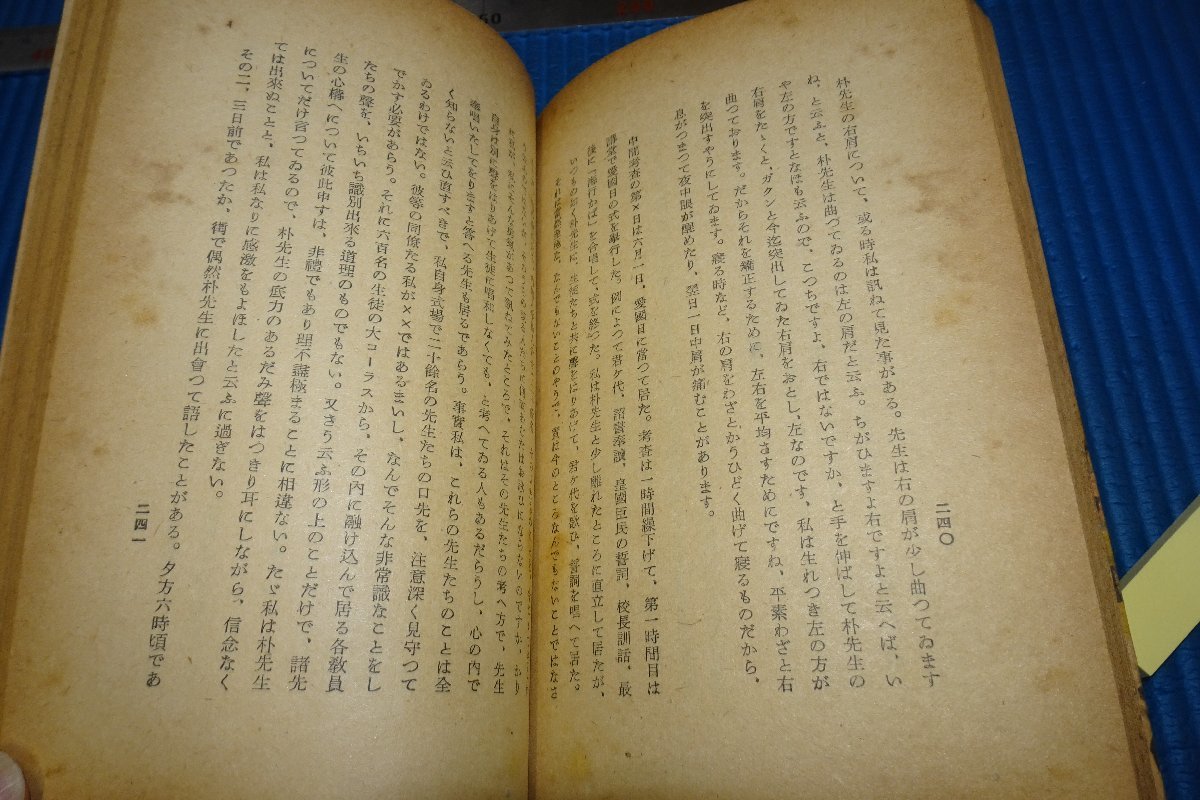 二四〇
朴先生の右肩について、或る時私は訊ねて見た事がある。先生は右の肩が少し曲つてゐます
ね、と云ふと、朴先生は曲つてゐるのは左の肩だと云ふ。ちがひますよ右ですよと云へば、い
や左の方ですとなほも云ふので、こつちですよ、右ではないですか、と手を伸ばして朴先生の
右肩をたゝくと、ガクンと今迄突出してゐた右肩をおとし、左なのです、私は生れつき左の方が
曲つております。だからそれを矯正するために、左右を平均さすためにですね、平素わざと右
を突出すやうにしてゐます。寝る時など、右の肩をわざとかうひどく曲げて寝るものだから、
息がつまつて夜中眼が醒めたり、翌日一日中肩が痛むことがあります。
中間考査の第×日は六月一日、愛國日に當つて居た。考査は一時間繰下げて、第一時間目は
講堂で愛國日の式を擧行した。例によつて君ケ代、詔書奉讀、皇國臣民の誓詞、校長訓話、最
後に「海行かば」を合唱して、式を終つた。私は朴先生と少し離れたところに直立して居たが、
いつものごとく朴先生は、生徒たちと共に聲をはりあげて、君ケ代を歌ひ、誓詞を唱へて居た。
なんでもないことのやうで、實は今のところなんでもないことではなさ
二四一
それはその先生たちの考へ方で、先生
自身は別に聲をはりあげて生徒に唱和しなくても、と考へてゐる人もあるだらうし、心の内で
奉唱いたしてをりますと答へる先生も居るであらう。事實私は、これらの先生たちのことは全
く知らないと云ひ直すべきで、私自身式場で二十餘名の先生たちの口先を、注意深く見守つて
ゐるわけではない。彼等の同僚たる私が××ではあるまいし、なんでそんな非常識なことをし
でかす必要があらう。それに六百名の生徒の大コーラスから、その内に融け込んで居る各教員
たちの聲を、いちいち識別出來る道理のものでもない。又さう云ふ形の上のことだけで、諸先
生の心構へについて彼此申すは、非禮でもあり理不盡極まることに相違ない。たゞ私は朴先生
についてだけ言つてゐるので、朴先生の底力のあるだみ聲をはつきり耳にしながら、信念なく
ては出來ぬことと、私は私なりに感激をもよほしたと云ふに過ぎない。
その二、三日前であつたか、街で偶然朴先生に出會つて語したことがある。夕方六時頃であ